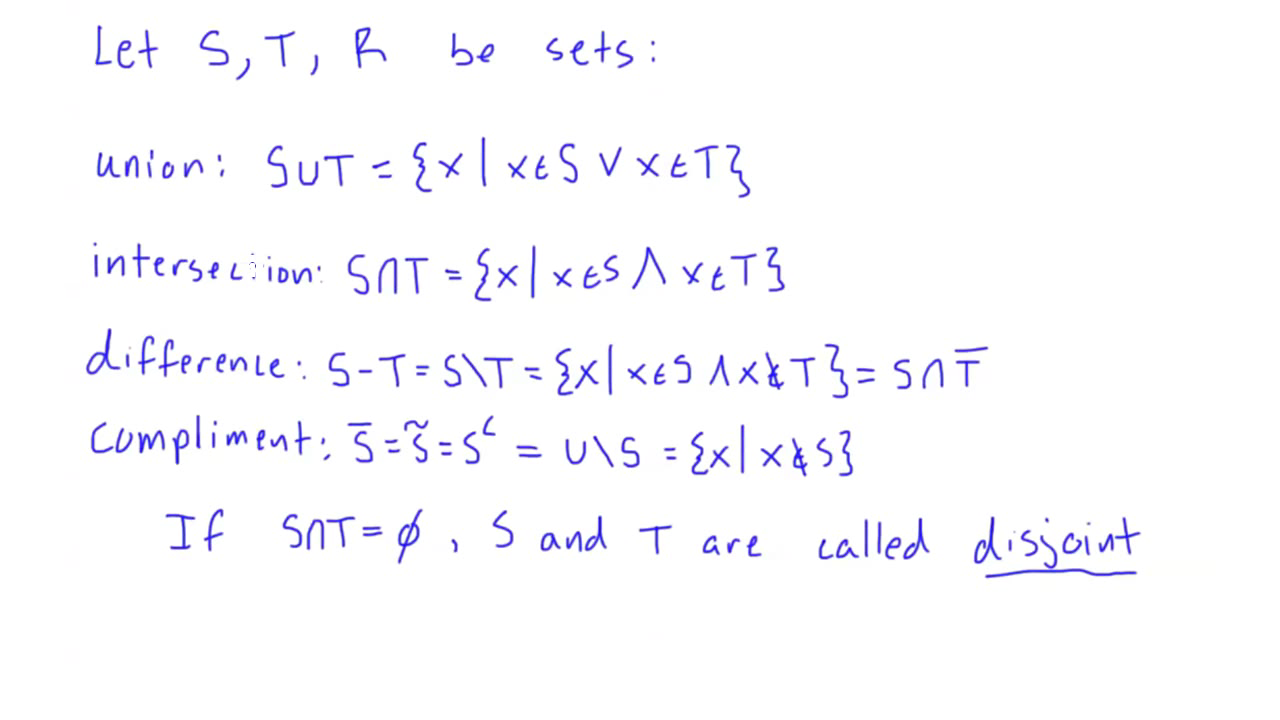 Let S, T, R be sets:
union: S∪T = {x | x∈S ∨ x∈T}
intersection: S∩T = {x | x∈S ∧ x∈T}
difference: S-T = S\T = {x | x∈S ∧ x∉T} = S∩T̅
compliment: S̅ = S̃ = Sᶜ = U\S = {x | x∉S}
If S∩T = ∅, S and T are called disjoint